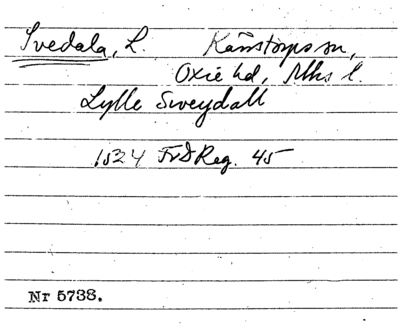 Svedala, L. Kärrstorps sn,
Oxie hd, Mhs l.
Lylle Sweydall
1524 FrdReg. 45
Nr 5738.